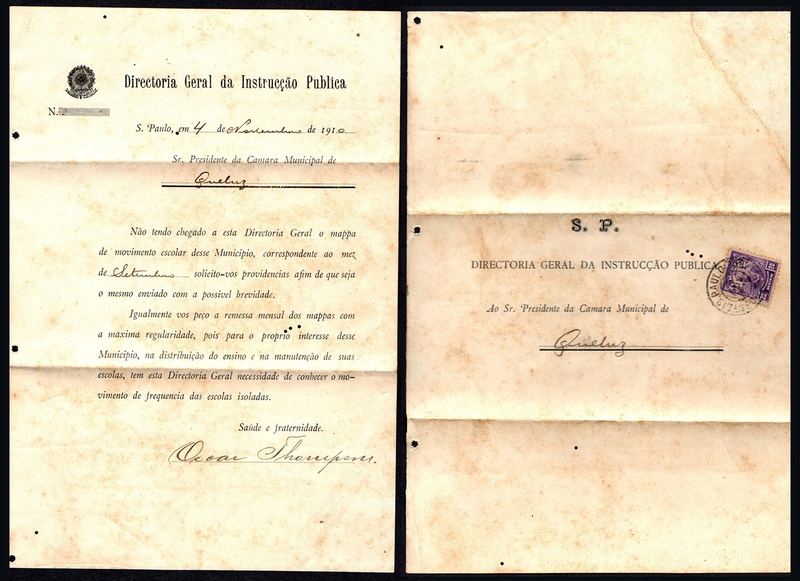 Directoria Geral da Instrucção Publica
N.
S. Paulo, em 4 de Novembro de 1910
Sr. Presidente da Camara Municipal de
Queluz
Não tendo chegado a esta Directoria Geral o mappa
de movimento escolar desse Municipio, correspondente ao mez
de Setembro solicito-vos providencias afim de que seja
o mesmo enviado com a possivel brevidade.
Igualmente vos peço a remessa mensal dos mappas com
a maxima regularidade, pois para o proprio interesse desse
Municipio, na distribuição do ensino e na manutenção de suas
escolas, tem esta Directoria Geral necessidade de conhecer o mo-
vimento de frequencia das escolas isoladas.
Saúde e fraternidade.
Oscar Thompson.
S. P.
DIRECTORIA GERAL DA INSTRUCÇÃO PUBLICA
Ao Sr. Presidente da Camara Municipal de
Queluz